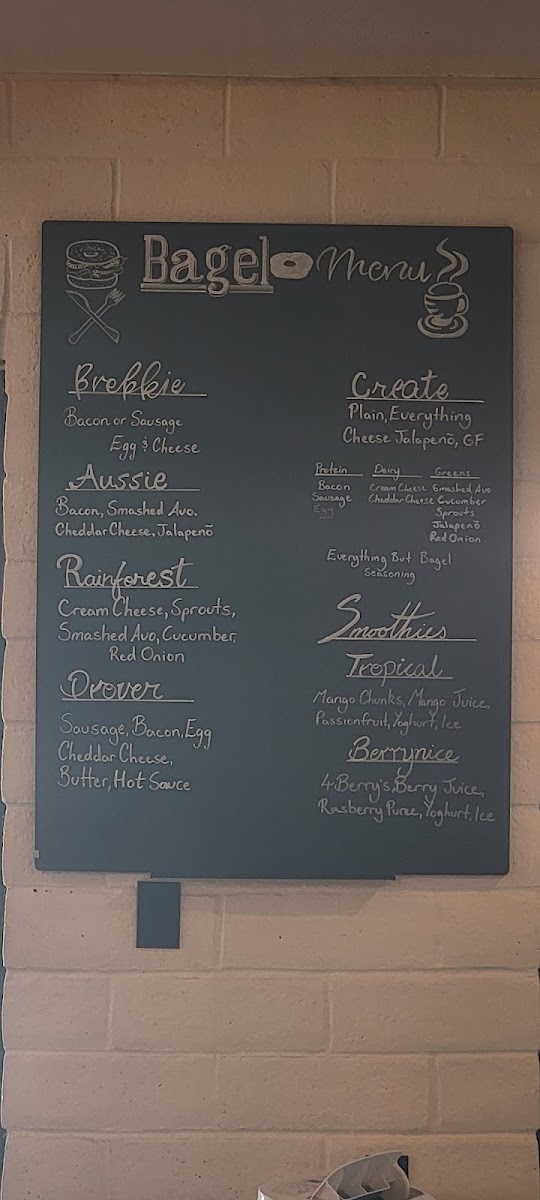 Bagel Menu
Brekkie
Bacon or Sausage
Egg & Cheese
Aussie
Bacon, Smashed Avo.
Cheddar Cheese, Jalapenõ
Rainforest
Cream Cheese, Sprouts,
Smashed Avo, Cucumber,
Red Onion
Drover
Sausage, Bacon, Egg
Cheddar Cheese,
Butter, Hot Sauce
Create
Plain, Everything
Cheese Jalapenõ, GF
Protein Dairy Greens
Bacon Cream Cheese Smashed Avo
Sausage Cheddar Cheese Cucumber
Egg Sprouts
Jalapenõ
Red Onion
Everything But Bagel
Seasoning
Smoothies
Tropical
Mango Chunks, Mango Juice,
Passionfruit, Yoghurt, Ice
Berrynice
4 Berry's, Berry Juice,
Rasberry Puree, Yoghurt, Ice